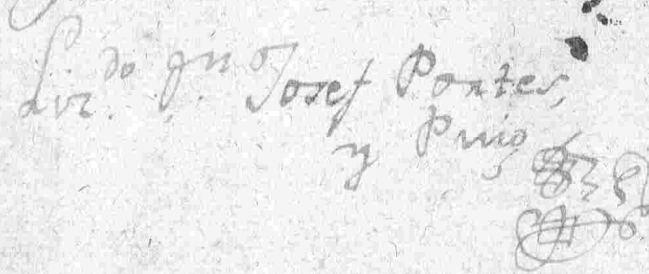 Liz.do Jn.o Josef Pontes
y Puig